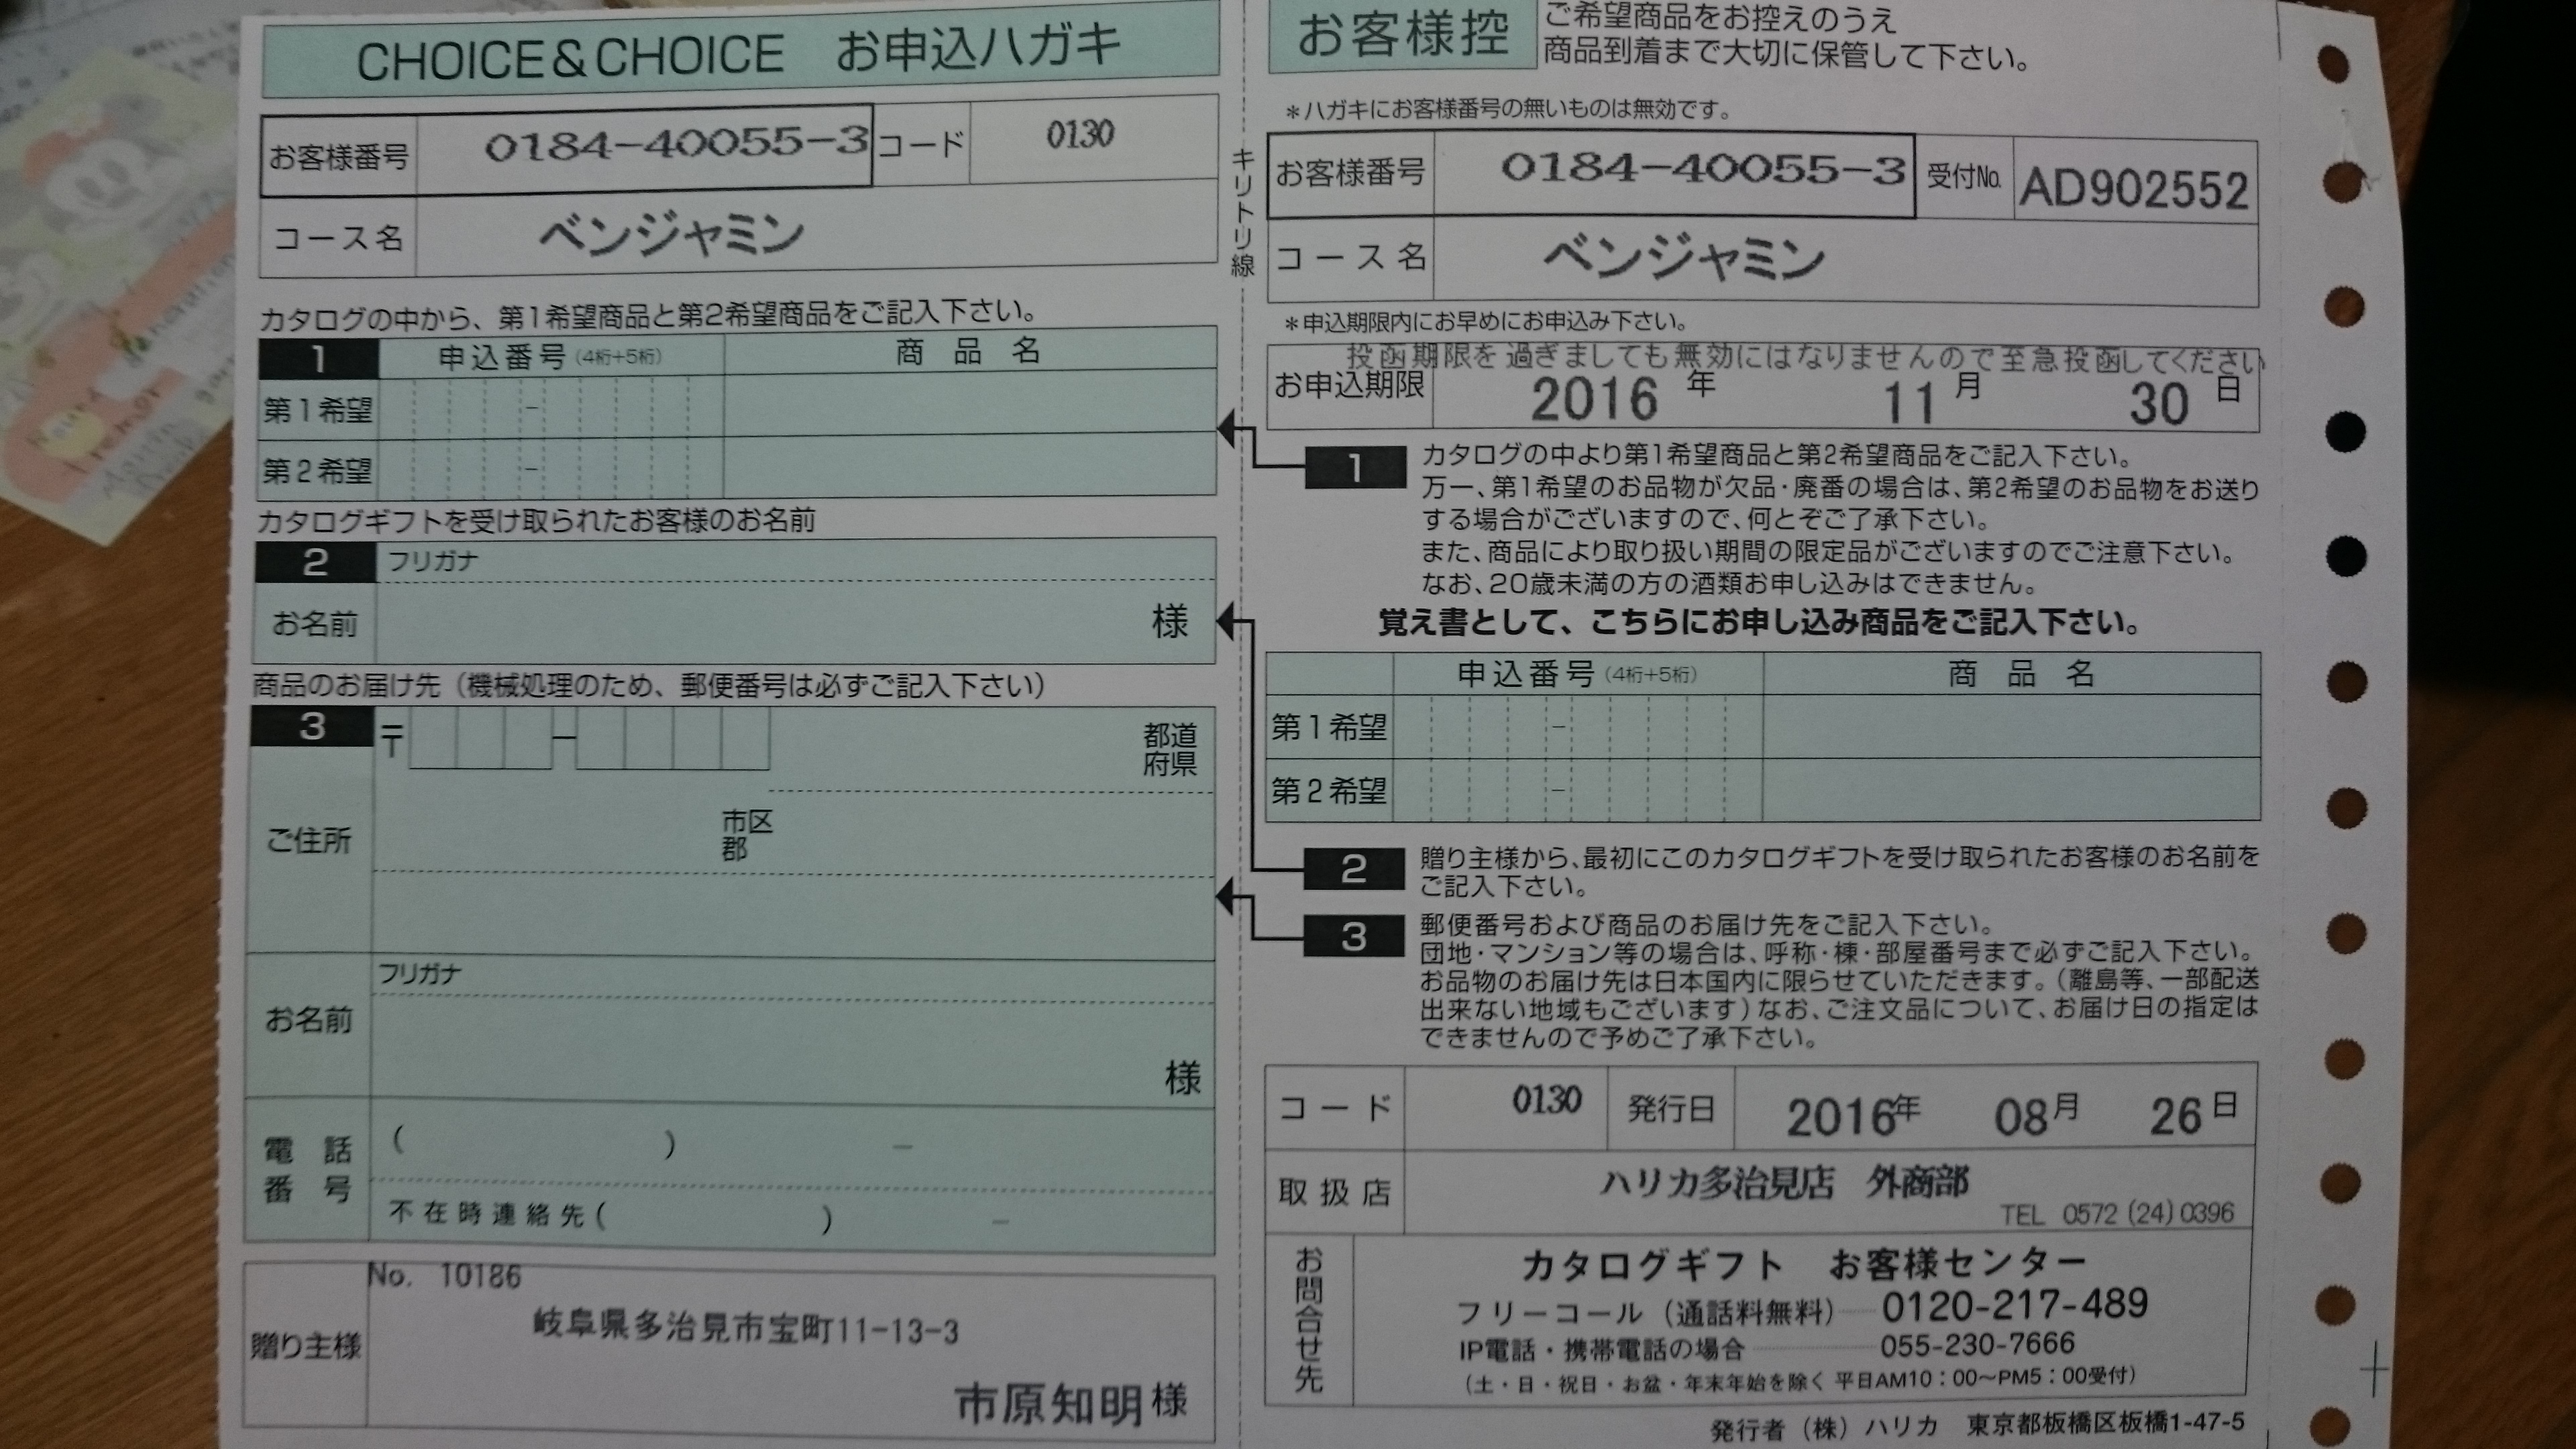 CHOICE&CHOICE お申込ハガキ
お客様番号 0184-40055-3 コード 0130
コース名 ベンジャミン
カタログの中から、第1希望商品と第2希望商品をご記入下さい。
1 申込番号(4桁+5桁) 商品名
第1希望 -
第2希望 -
カタログギフトを受け取られたお客様のお名前
2 フリガナ
お名前 様
商品のお届け先(機械処理のため、郵便番号は必ずご記入下さい)
3 〒 - 都道府県
ご住所 市区郡
フリガナ
お名前
様
電話番号 ( ) -
不在時連絡先( ) -
No. 10186
贈り主様 岐阜県多治見市宝町11-13-3
市原知明様
キリトリ線
お客様控 ご希望商品をお控えのうえ
商品到着まで大切に保管して下さい。
*ハガキにお客様番号の無いものは無効です。
お客様番号 0184-40055-3 受付No. AD902552
コース名 ベンジャミン
*申込期限内にお早めにお申込み下さい。
投函期限を過ぎましても無効にはなりませんので至急投函してください
お申込期限 2016年 11月 30日
1 カタログの中より第1希望商品と第2希望商品をご記入下さい。
万一、第1希望のお品物が欠品・廃番の場合は、第2希望のお品物をお送り
する場合がございますので、何とぞご了承下さい。
また、商品により取り扱い期間の限定品がございますのでご注意下さい。
なお、20歳未満の方の酒類お申し込みはできません。
覚え書として、こちらにお申し込み商品をご記入下さい。
申込番号(4桁+5桁) 商品名
第1希望 -
第2希望 -
2 贈り主様から、最初にこのカタログギフトを受け取られたお客様のお名前を
ご記入下さい。
3 郵便番号および商品のお届け先をご記入下さい。
団地・マンション等の場合は、呼称・棟・部屋番号まで必ずご記入下さい。
お品物のお届け先は日本国内に限らせていただきます。(離島等、一部配送
出来ない地域もございます)なお、ご注文品について、お届け日の指定は
できませんので予めご了承下さい。
コード 0130 発行日 2016年 08月 26日
取扱店 ハリカ多治見店 外商部
TEL 0572(24)0396
お問合せ先 カタログギフト お客様センター
フリーコール(通話料無料) 0120-217-489
IP電話・携帯電話の場合 055-230-7666
(土・日・祝日・お盆・年末年始を除く 平日AM10:00~PM5:00受付)
発行者(株)ハリカ 東京都板橋区板橋1-47-5